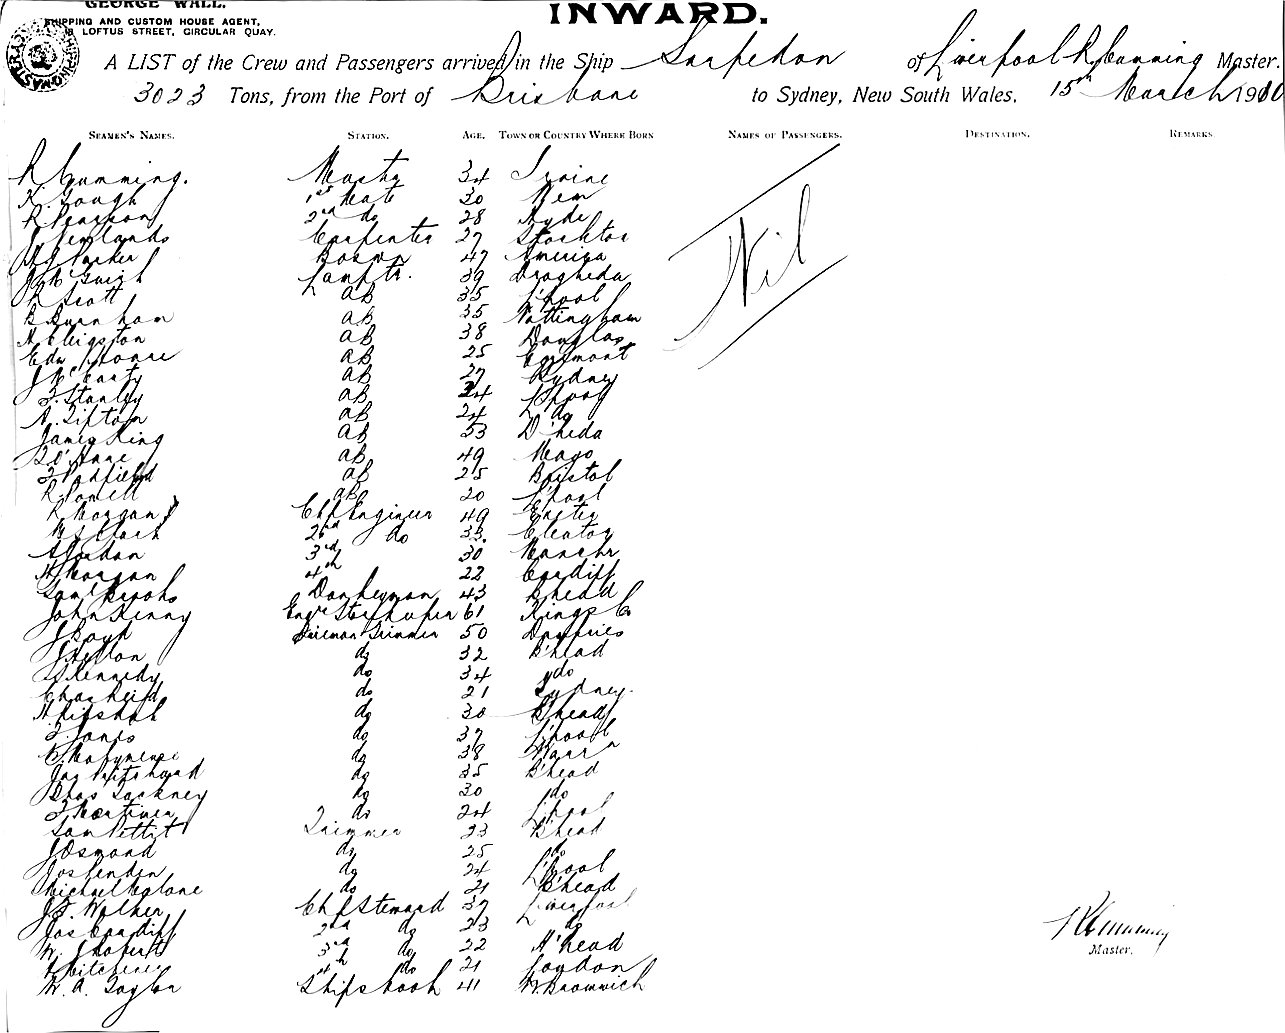 GEORGE WALL.
SHIPPING AND CUSTOM HOUSE AGENT,
LOFTUS STREET, CIRCULAR QUAY.
INWARD.
A LIST of the Crew and Passengers arrived in the Ship Sarpedon of Liverpool R Cumming Master.
3023 Tons, from the Port of Brisbane to Sydney, New South Wales, 15th March 1910
SEAMEN'S NAMES. STATION. AGE. TOWN OR COUNTRY WHERE BORN NAMES OF PASSENGERS. DESTINATION. REMARKS
R Cumming. Master 34 Irvine
K. Gough 1st Mate 30
R Pearson 2nd do 28 Hyde
Newlands Carpenter 27 Stockton
Parker Boswn 47 America
Lamptr. 39 Drogheda
R Scott AB 35 L'pool
B Burnham AB 35 Nottingham
AB 38 Douglas
Edw Moore AB 25 Egremont
J McCarty AB 27 Sydney
F. Stanley AB 24 L'pool
A. Tipton AB 24 do
James King AB 53 D'heda
AB 49 Mayo
AB 25 Bristol
R Powell AB 20 L'pool
R Morgan Chf Engineer 49 Exeter
Clark 2nd do 33. Cleator
A Jordan 3rd 30 Manchr
H Morgan 4th 22 Cardiff
Saml Brooks Donkeyman 43 B'head
John Kenny Engr Storekeeper 61 Kings Co
J Boyd Fireman Trimmer 50 Dumfries
do 32 B'head
Kennedy do 34 do
Chas Reid do 21 Sydney.
do 30 B'head
J. Jones do 37 L'pool
do 38
Jas Pritchard do 35 B'head
Thos Sackney do 30 do
T Mortimer do 24 L'pool
Sam Pettit Trimmer 23 B'head
J Osmond do 25 do
Jos Fenden do 24 L'pool
Michael Malone do 21 B'head
J. T. Walker Chf Steward 37 Liverpool
Jos Cardiff 2nd do 23 do
W. J Roberts 3rd do 22 H'head
Kitchener 4th do 21 London
W. A. Taylor Ships cook 41 W. Bromwich
Nil
R Cumming
Master.